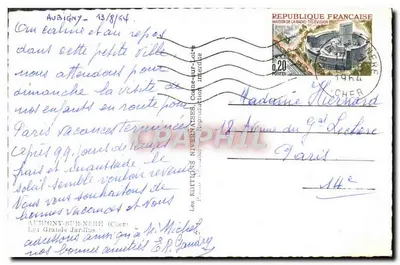 AUBIGNY - 13/8/64
Au calme et au repos
dans cette petite ville,
nous attendons pour
dimanche la visite de
nos enfants en route pour
Paris vacances terminées
après 99 jours de temps
frais et maussade le
soleil semble vouloir revenir
Nous vous souhaitons de
bonnes vacances et vous
adressons ainsi qu'à Michel
nos bonnes amitiés
AUBIGNY-SUR-NERE (Cher)
Les Grands Jardins
Les EDITIONS NIVERNAISES, Cosne-sur-Loire
Reproduction interdite
REPUBLIQUE FRANCAISE
MAISON DE LA RADIO-TELEVISION
0,20
POSTES
1964
CHER
Madame Huernard
12 Avenue du Gal Leclerc
Paris
14e
DELCAMPE